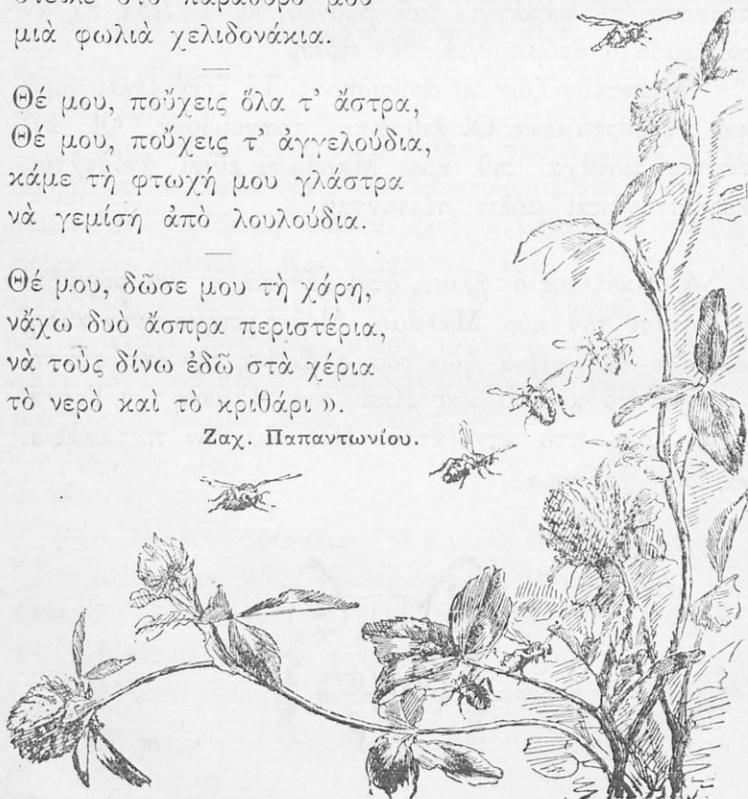 στεῖλε στὸ παράθυρό μου
μιὰ φωλιὰ χελιδονάκια.
Θέ μου, ποὔχεις ὅλα τ' ἄστρα,
Θέ μου, ποὔχεις τ' ἀγγελούδια,
κάμε τὴ φτωχή μου γλάστρα
νὰ γεμίσῃ ἀπὸ λουλούδια.
Θέ μου, δῶσε μου τὴ χάρη,
νἄχω δυὸ ἄσπρα περιστέρια,
νὰ τοὺς δίνω ἐδῶ στὰ χέρια
τὸ νερὸ καὶ τὸ κριθάρι ».
Ζαχ. Παπαντωνίου.